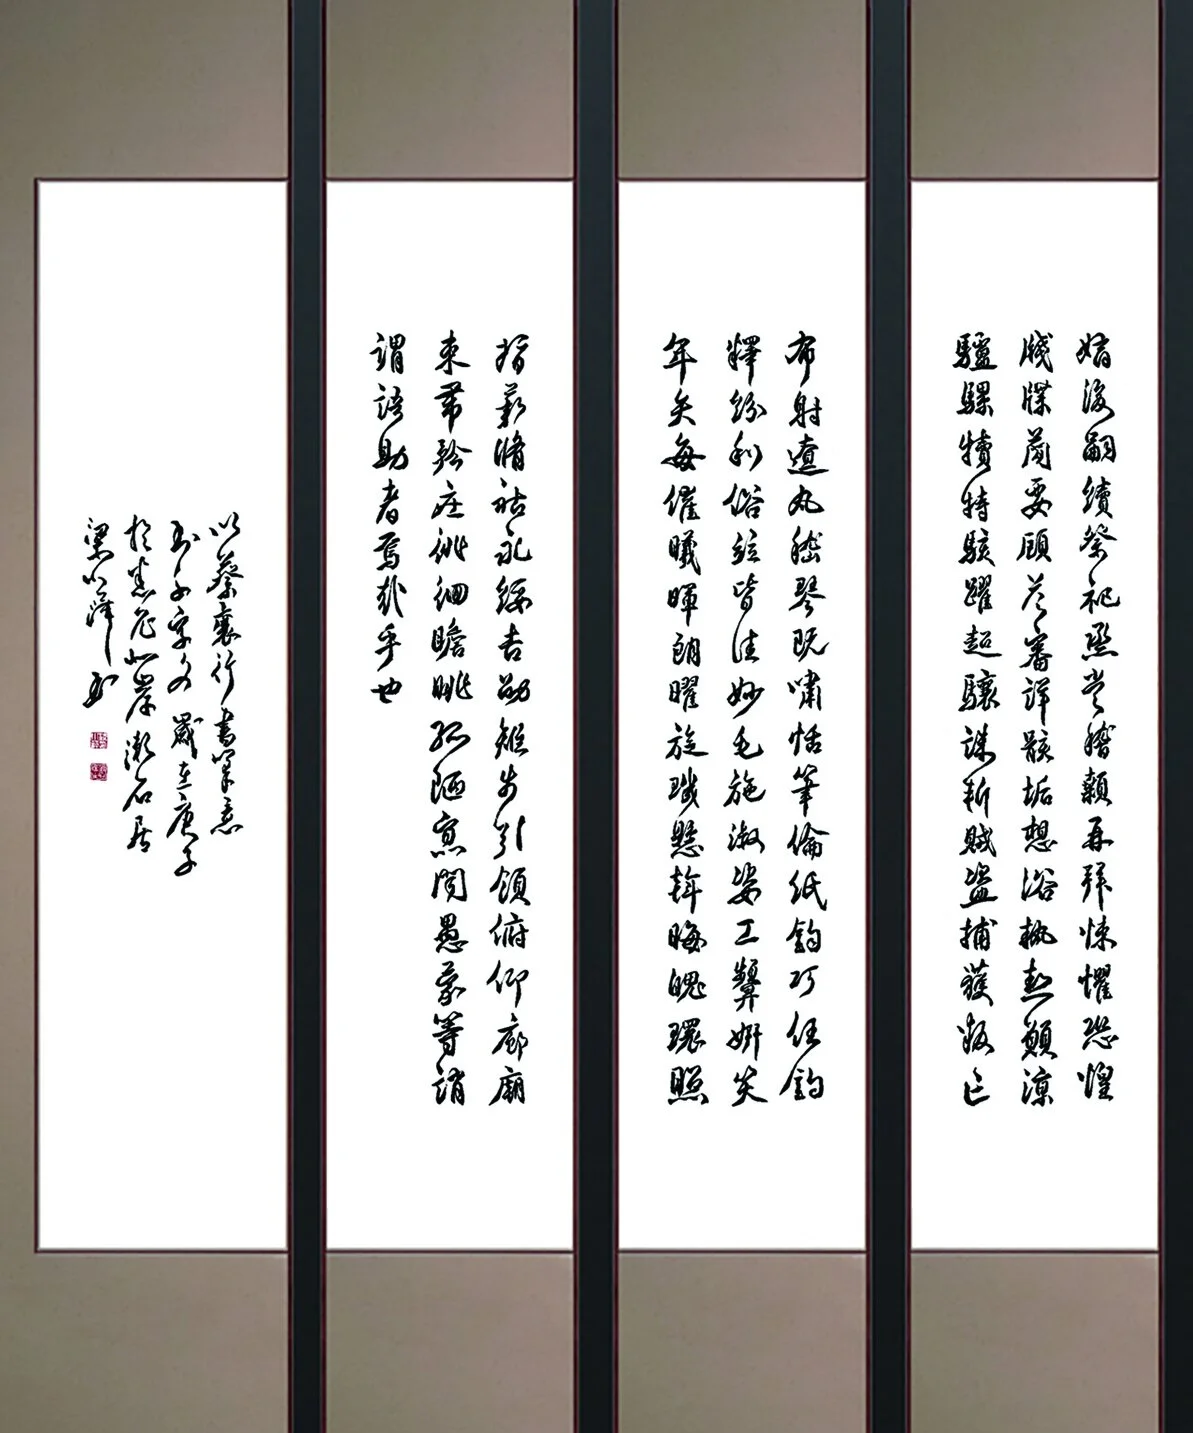 嫡後嗣續祭祀烝嘗稽顙再拜悚懼恐惶
牋牒簡要顧答審詳骸垢想浴執熱願涼
驢騾犢特駭躍超驤誅斬賊盜捕獲叛亡
布射遼丸嵇琴阮嘯恬筆倫紙鈞巧任釣
釋紛利俗並皆佳妙毛施淑姿工顰妍笑
年矢每催曦暉朗曜旋璣懸斡晦魄環照
指薪脩祜永綏吉劭矩步引領俯仰廊廟
束帶矜莊徘徊瞻眺孤陋寡聞愚蒙等誚
謂語助者焉哉乎也
以蔡襄行書筆意
書千字文 歲在庚子
於北岸漱石居
梁書